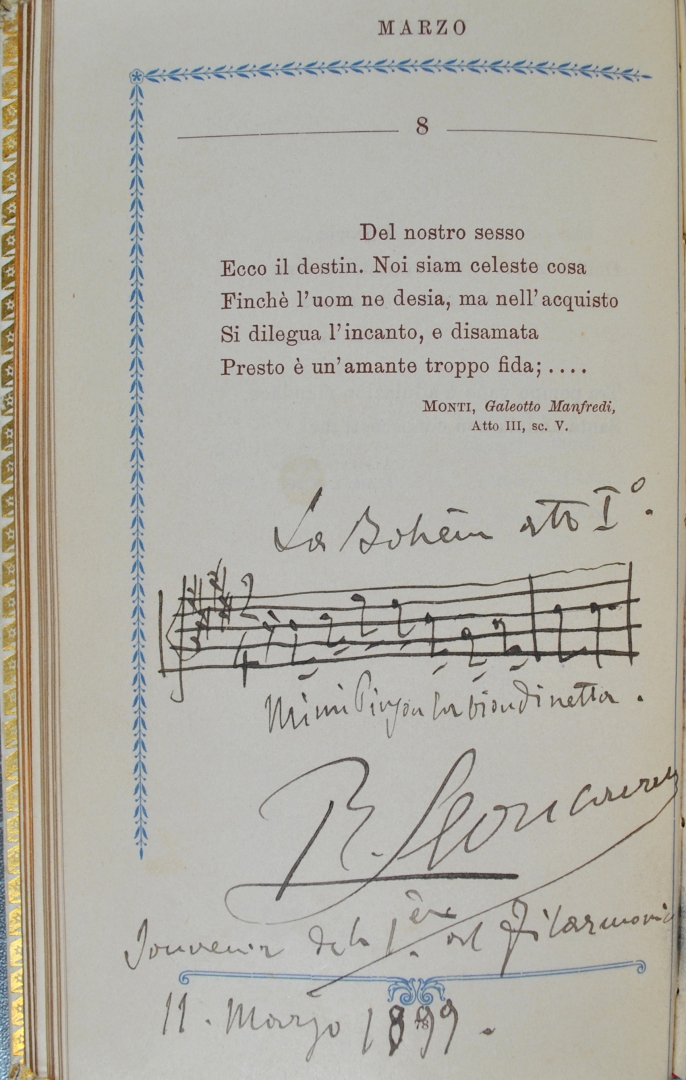 MARZO
8
Del nostro sesso
Ecco il destin. Noi siam celeste cosa
Finchè l'uom ne desia, ma nell'acquisto
Si dilegua l'incanto, e disamata
Presto è un'amante troppo fida; ....
MONTI, Galeotto Manfredi,
Atto III, sc. V.
La Bohème atto Iº.
Mimi Pinson la biondinetta.
R. Leoncavallo
Souvenir de la 1ère al Filarmonico
11. Marzo 1899.